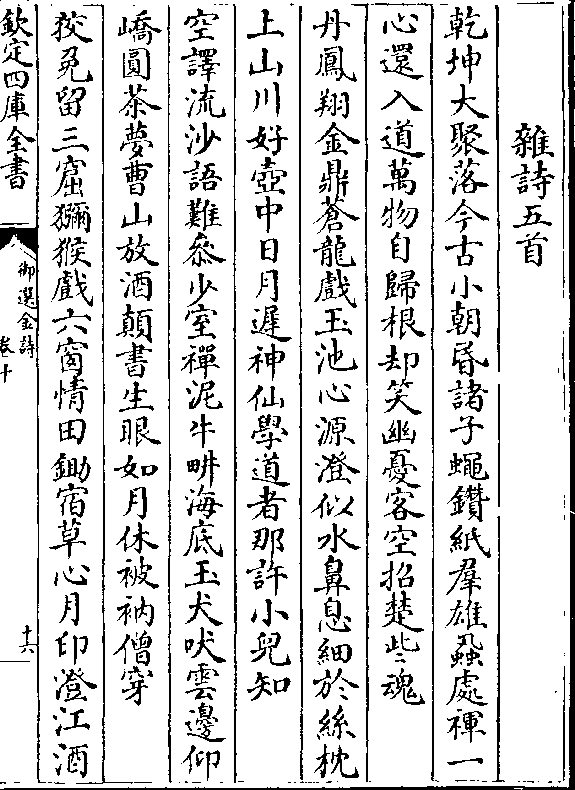 雜詩五首
乾坤大聚落今古小朝昏諸子蠅鑽紙羣雄蝨處褌一
心還入道萬物自歸根却笑幽憂客空招楚些魂
丹鳳翔金鼎蒼龍戲玉池心源澄似水鼻息細於絲枕
上山川好壺中日月遲神仙學道者那許小兒知
空譯流沙語難叅少室禪泥牛畊海底玉犬吠雲邊仰
嶠圓茶夢曹山放酒顛書生眼如月休被衲僧穿
狡兎留三窟獼猴戲六窗情田鋤宿草心月印澄江酒
欽定四庫全書
御選金詩
卷十
十六